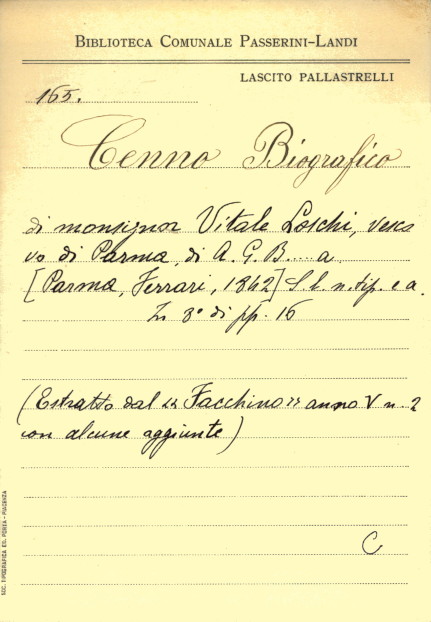 BIBLIOTECA COMUNALE PASSERINI-LANDI
LASCITO PALLASTRELLI
165.
Cenno Biografico
di monsignor Vitale Loschi, vesco
vo di Parma, di A. G. B.....a
[Parma, Ferrari, 1842] S. l. n. tip. e a.
In 8° di pp. 16
(Estratto dal « Facchino » anno V n. 2
con alcune aggiunte)
C
SOC. TIPOGRAFICA ED. PORTA - PIACENZA